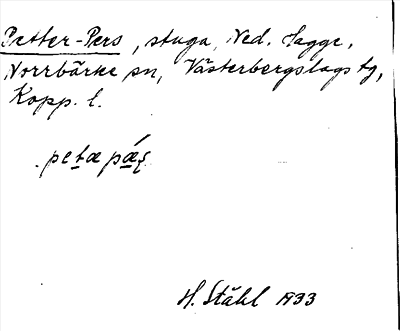 Petter-Pers, stuga, Ned. Hagge,
Norrbärke sn, Västerbergslags tg,
Kopp. l.
H. Ståhl 1933